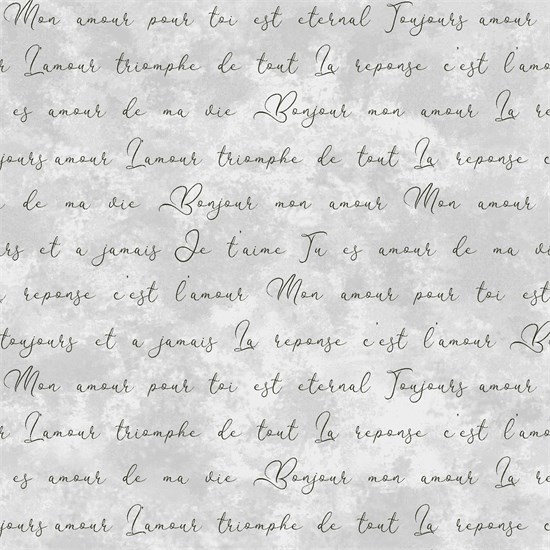 Mon amour pour toi est eternal Toujours amour
r L'amour triomphe de tout La reponse c'est l'amo
es amour de ma vie Bonjour mon amour La r
jours amour L'amour triomphe de tout La reponse c
de ma vie Bonjour mon amour Mon amour
rs et a jamais Je t'aime Tu es amour de ma vi
reponse c'est l'amour Mon amour pour toi est
toujours et a jamais La reponse c'est l'amour B
Mon amour pour toi est eternal Toujours amour
r L'amour triomphe de tout La reponse c'est l'amo
es amour de ma vie Bonjour mon amour La r
jours amour L'amour triomphe de tout La reponse c